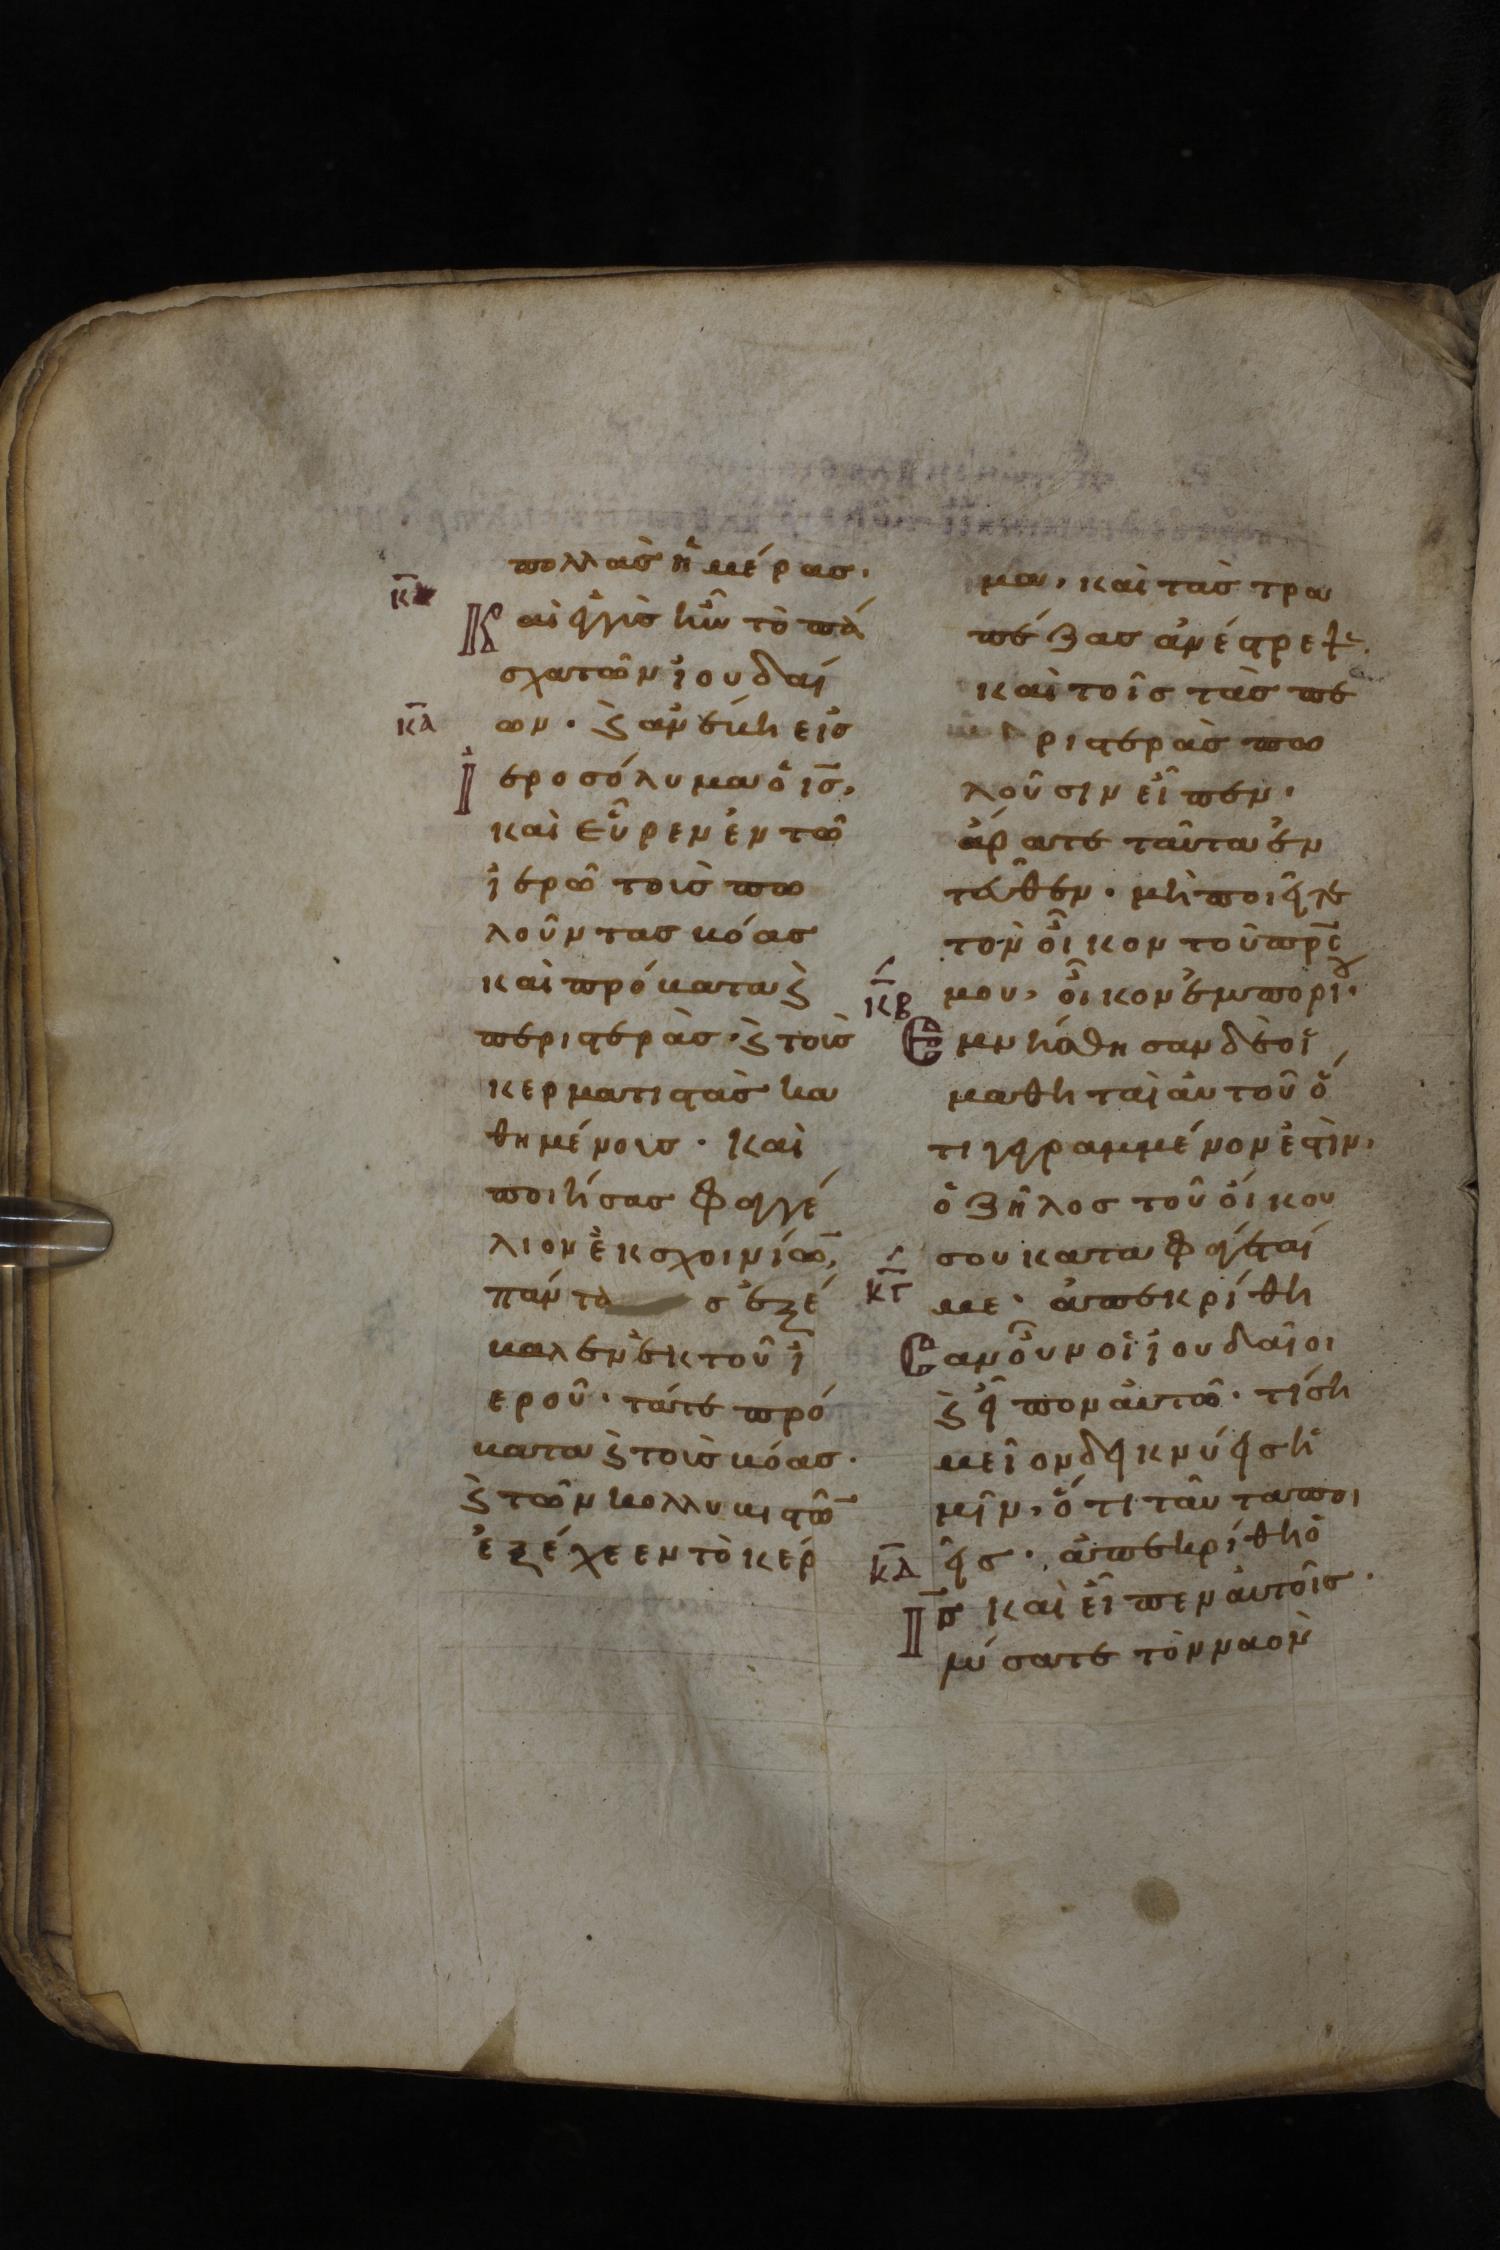 πολλὰς ἡμέρας.
κ
Καὶ ἐγγὺς ἦν τὸ πά
σχα τῶν ἰουδαί
κα
ων. ϗ ἀνέβη εἰς
Ἱεροσόλυμα ὁ ις̅,
καὶ εὗρεν ἐν τῶ
ἱερῶ τοὺς πω
λοῦντας βόας
καὶ πρόβατα ϗ
περιστεράς. ϗ τοὺς
κερματιστὰς κα
θημένους. Καὶ
ποιήσας φραγέ
λιον ἐκ σχοινίω̅,
πάντας ἐξέ
βαλεν ἐκ τοῦ ἱ
εροῦ. τά τε πρό
βατα ϗ τοὺς βόας.
ϗ τῶν κολλυβιστῶ̅
ἐξέχεεν τὸ κέρ
μα, καὶ τὰς τρα
πέζας ἀνέστρεψε.
καὶ τοῖς τὰς πε
ριστερὰς πω
λοῦσιν εἶπεν.
ἄρατε ταῦτα ἐν
τεῦθεν. μὴ ποιεῖτε
τὸν οἶκον τοῦ πρ̅ς
κβ
μου, οἶκον ἐμπορίου.
Ἐμνήσθησαν δὲ οἱ
μαθηταὶ αὐτοῦ ὅ
τι γεγραμμένον ἐστὶν,
ὁ ζῆλος τοῦ οἴκου
σου καταφάγεταί
κγ
με. ἀπεκρίθη
Σαν οὖν οἱ ἰουδαῖοι
ϗ εἶπον αὐτῶ. τί ση
μεῖον δεικνύεις ἡ
μῖν, ὅτι ταῦτα ποι
κδ
εῖς. ἀπεκρίθη ὁ
Ις̅ καὶ εἶπεν αὐτοῖς.
λύσατε τὸν ναὸν